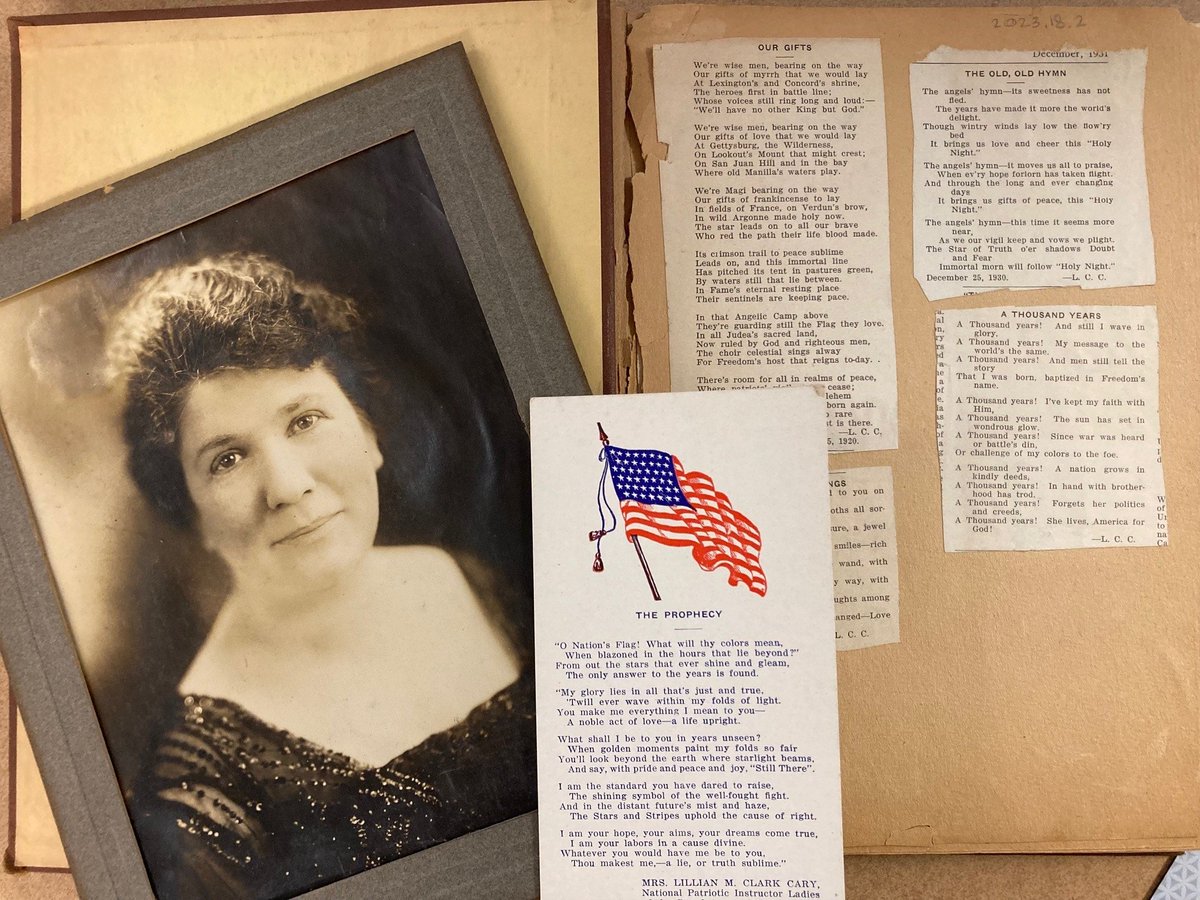 2023.18.2
OUR GIFTS
We're wise men, bearing on the way
Our gifts of myrrh that we would lay
At Lexington's and Concord's shrine,
The heroes first in battle line;
Whose voices still ring long and loud:—
"We'll have no other King but God."
We're wise men, bearing on the way
Our gifts of love that we would lay
At Gettysburg, the Wilderness,
On Lookout's Mount that might crest;
On San Juan Hill and in the bay
Where old Manilla's waters play.
We're Magi bearing on the way
Our gifts of frankincense to lay
In fields of France, on Verdun's brow,
In wild Argonne made holy now.
The star leads on to all our brave
Who red the path their life blood made.
Its crimson trail to peace sublime
Leads on, and this immortal line
Has pitched its tent in pastures green,
By waters still that lie between.
In Fame's eternal resting place
Their sentinels are keeping pace.
In that Angelic Camp above
They're guarding still the Flag they love.
In all Judea's sacred land,
Now ruled by God and righteous men,
The choir celestial sings alway
For Freedom's host that reigns to-day. .
There's room for all in realms of peace,
cease;
lehem
born again.
rare
t is there.
—L. C. C.
5, 1920.
NGS
l to you on
oths all sor-
sure, a jewel
smiles—rich
wand, with
y way, with
ughts among
anged—Love
L. C. C.
December, 1931
THE OLD, OLD HYMN
The angels' hymn—its sweetness has not
fled.
The years have made it more the world's
delight.
Though wintry winds lay low the flow'ry
bed
It brings us love and cheer this "Holy
Night."
The angels' hymn—it moves us all to praise,
When ev'ry hope forlorn has taken flight.
And through the long and ever changing
days
It brings us gifts of peace, this "Holy
Night."
The angels' hymn—this time it seems more
near,
As we our vigil keep and vows we plight.
The Star of Truth o'er shadows Doubt
and Fear
Immortal morn will follow "Holy Night."
December 25, 1930. —L. C. C.
A THOUSAND YEARS
A Thousand years! And still I wave in
glory.
A Thousand years! My message to the
world's the same.
A Thousand years! And men still tell the
story
That I was born, baptized in Freedom's
name.
A Thousand years! I've kept my faith with
Him,
A Thousand years! The sun has set in
wondrous glow.
A Thousand years! Since war was heard
or battle's din,
Or challenge of my colors to the foe.
A Thousand years! A nation grows in
kindly deeds,
A Thousand years! In hand with brother-
hood has trod,
A Thousand years! Forgets her politics
and creeds,
A Thousand years! She lives, America for
God!
—L. C. C.
THE PROPHECY
"O Nation's Flag! What will thy colors mean,
When blazoned in the hours that lie beyond?"
From out the stars that ever shine and gleam,
The only answer to the years is found.
"My glory lies in all that's just and true,
'Twill ever wave within my folds of light.
You make me everything I mean to you—
A noble act of love—a life upright.
What shall I be to you in years unseen?
When golden moments paint my folds so fair
You'll look beyond the earth where starlight beams,
And say, with pride and peace and joy, "Still There".
I am the standard you have dared to raise,
The shining symbol of the well-fought fight.
And in the distant future's mist and haze,
The Stars and Stripes uphold the cause of right.
I am your hope, your aims, your dreams come true,
I am your labors in a cause divine.
Whatever you would have me be to you,
Thou makest me,—a lie, or truth sublime."
MRS. LILLIAN M. CLARK CARY,
National Patriotic Instructor Ladies